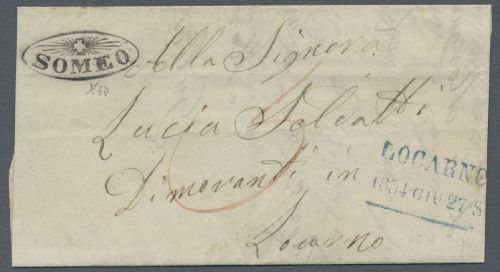 SOMEO
Alla Signora
Lucia
Dimoranti in
Locarno
LOCARNO
1854 GIU 27 S